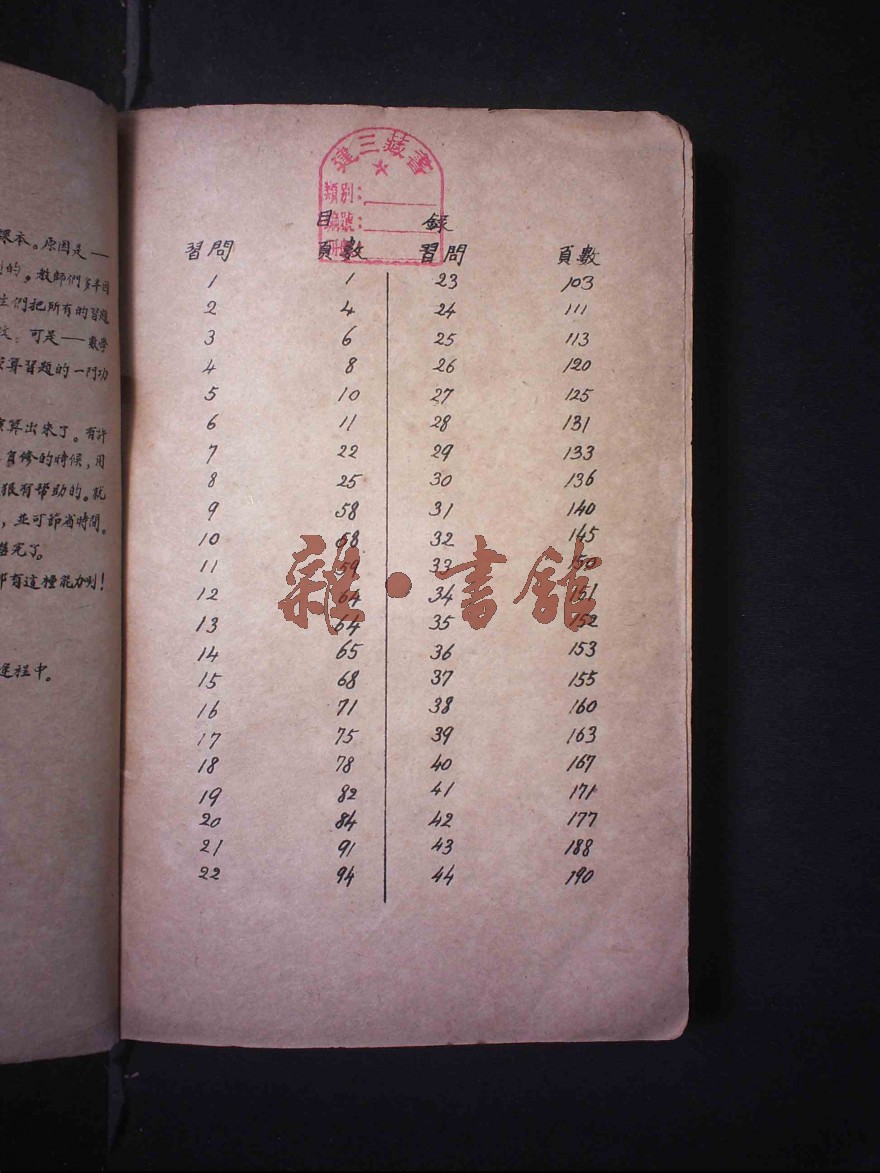 課本。原因是——
的。教師們多半因
生們把所有的習題
可是——數學
算習題的一門功
算出來了。有許
自修的時候，用
很有幫助的。就
，並可節省時間。
完了。
有這種能力咧！
進程中。
建三藏書
類別：
編號：
目 錄
習問 頁數 習問 頁數
1 1 23 103
2 4 24 111
3 6 25 113
4 8 26 120
5 10 27 125
6 11 28 131
7 22 29 133
8 25 30 136
9 58 31 140
10 58 32 145
11 59 33 150
12 64 34 151
13 64 35 152
14 65 36 153
15 68 37 155
16 71 38 160
17 75 39 163
18 78 40 167
19 82 41 171
20 84 42 177
21 91 43 188
22 94 44 190
雜·書館